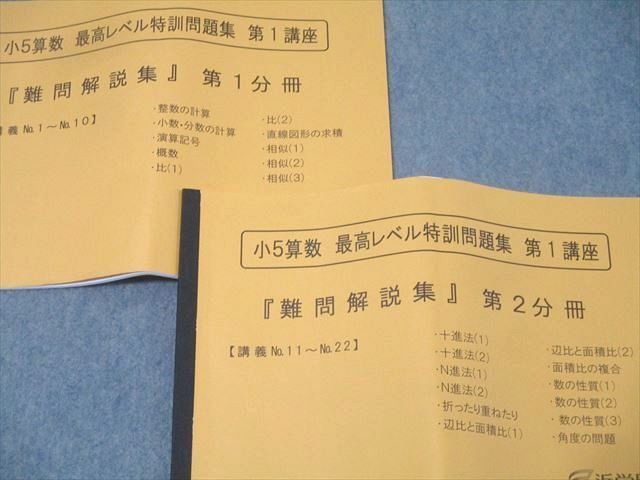 小5算数 最高レベル特訓問題集 第1講座
『難問解説集』 第1分冊
講義 No.1～No.10】
・整数の計算
・小数・分数の計算
・演算記号
・概数
・比(1)
・比(2)
・直線図形の求積
・相似(1)
・相似(2)
・相似(3)
小5算数 最高レベル特訓問題集 第1講座
『難問解説集』 第2分冊
【講義 No.11～No.22】
・十進法(1)
・十進法(2)
・N進法(1)
・N進法(2)
・折ったり重ねたり
・辺比と面積比(1)
・辺比と面積比(2)
・面積比の複合
・数の性質(1)
・数の性質(2)
・数の性質(3)
・角度の問題
浜学